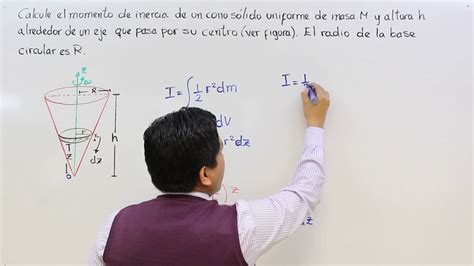 Calcule el momento de inercia de un cono sólido uniforme de masa M y altura h
alrededor de un eje que pasa por su centro (ver figura). El radio de la base
circular es R.
z
R
h
r
z
dz
O
I = ∫ 1/2 r² dm
dV
r² dz
z
I = 1